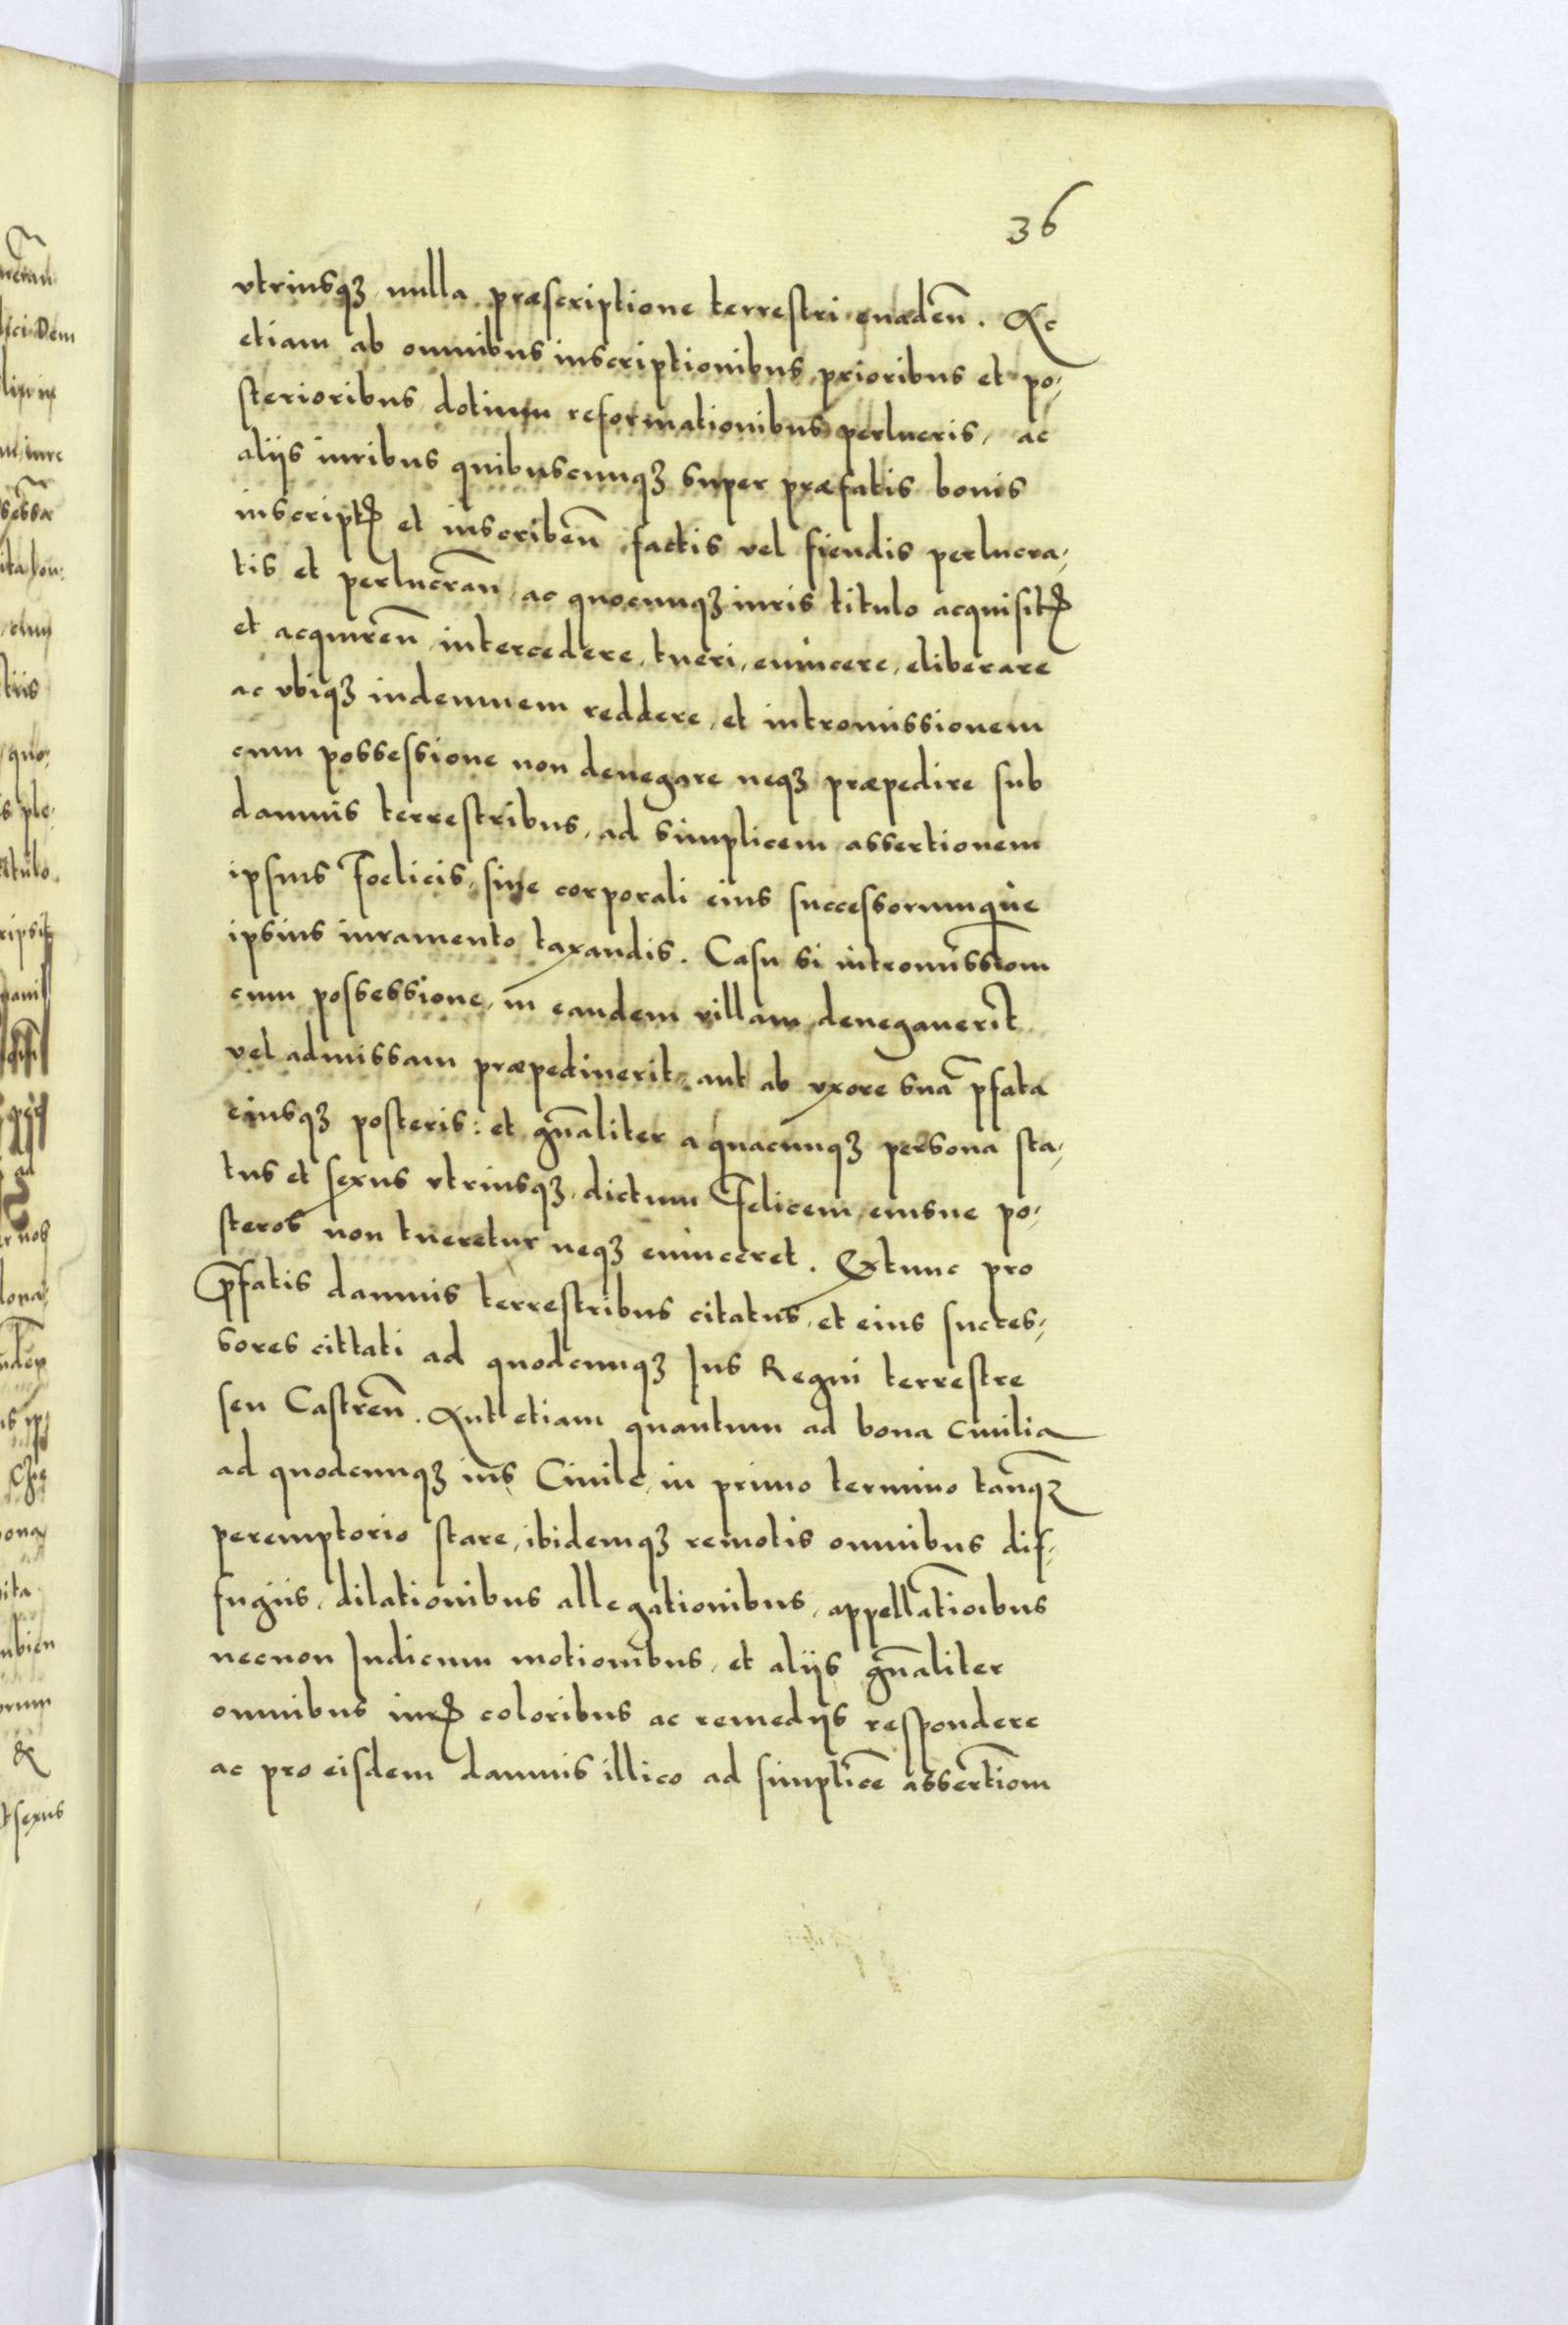 36
vtriusqꝫ nulla præscriptione terrestri euadeñ. Ac
etiam ab omnibus inscriptionibus prioribus et po-
sterioribus, dotium reformationibus perlucris, ac
aliis iuribus quibuscunqꝫ super præfatis bonis
inscriptꝭ et inscribeñ factis vel fiendis perlucra-
tis et perlucrañ, ac quocunqꝫ iuris titulo acquisitꝭ
et acquireñ, intercedere, tueri, euincere, eliberare
ac vbiqꝫ indemnem reddere, et intromissionem
cum possessione non denegare neqꝫ præpedire sub
damnis terrestribus, ad simplicem assertionem
ipsius Foelicis, siue corporali eius successorumque
ipsius iuramento taxandis. Casu si intromissiom̄
cum possessione, in eandem villam denegauerit
vel admissam præpediuerit, aut ab vxore sua p̄fata
eiusqꝫ posteris: et gn̄aliter a quacunqꝫ persona sta-
tus et sexus vtriusqꝫ, dictum Felicem, eiusue po-
steros non tueretur neqꝫ euinceret. Extunc pro
p̄fatis damnis terrestribus citatus, et eius succes-
sores cittati ad quodcunqꝫ Ius Regni terrestre
seu Castreñ. Aut etiam quantum ad bona Ciuilia
ad quodcunqꝫ ius Ciuile, in primo termino tanq̄ꝫ
peremptorio stare, ibidemqꝫ remotis omnibus dif-
fugiis, dilationibus allegationibus, appellātioibus
necnon Iudicum motionibus, et aliis gn̄aliter
omnibus iurꝭ coloribus ac remediis respondere
ac pro eisdem damnis illico ad simplicē assertiom̄